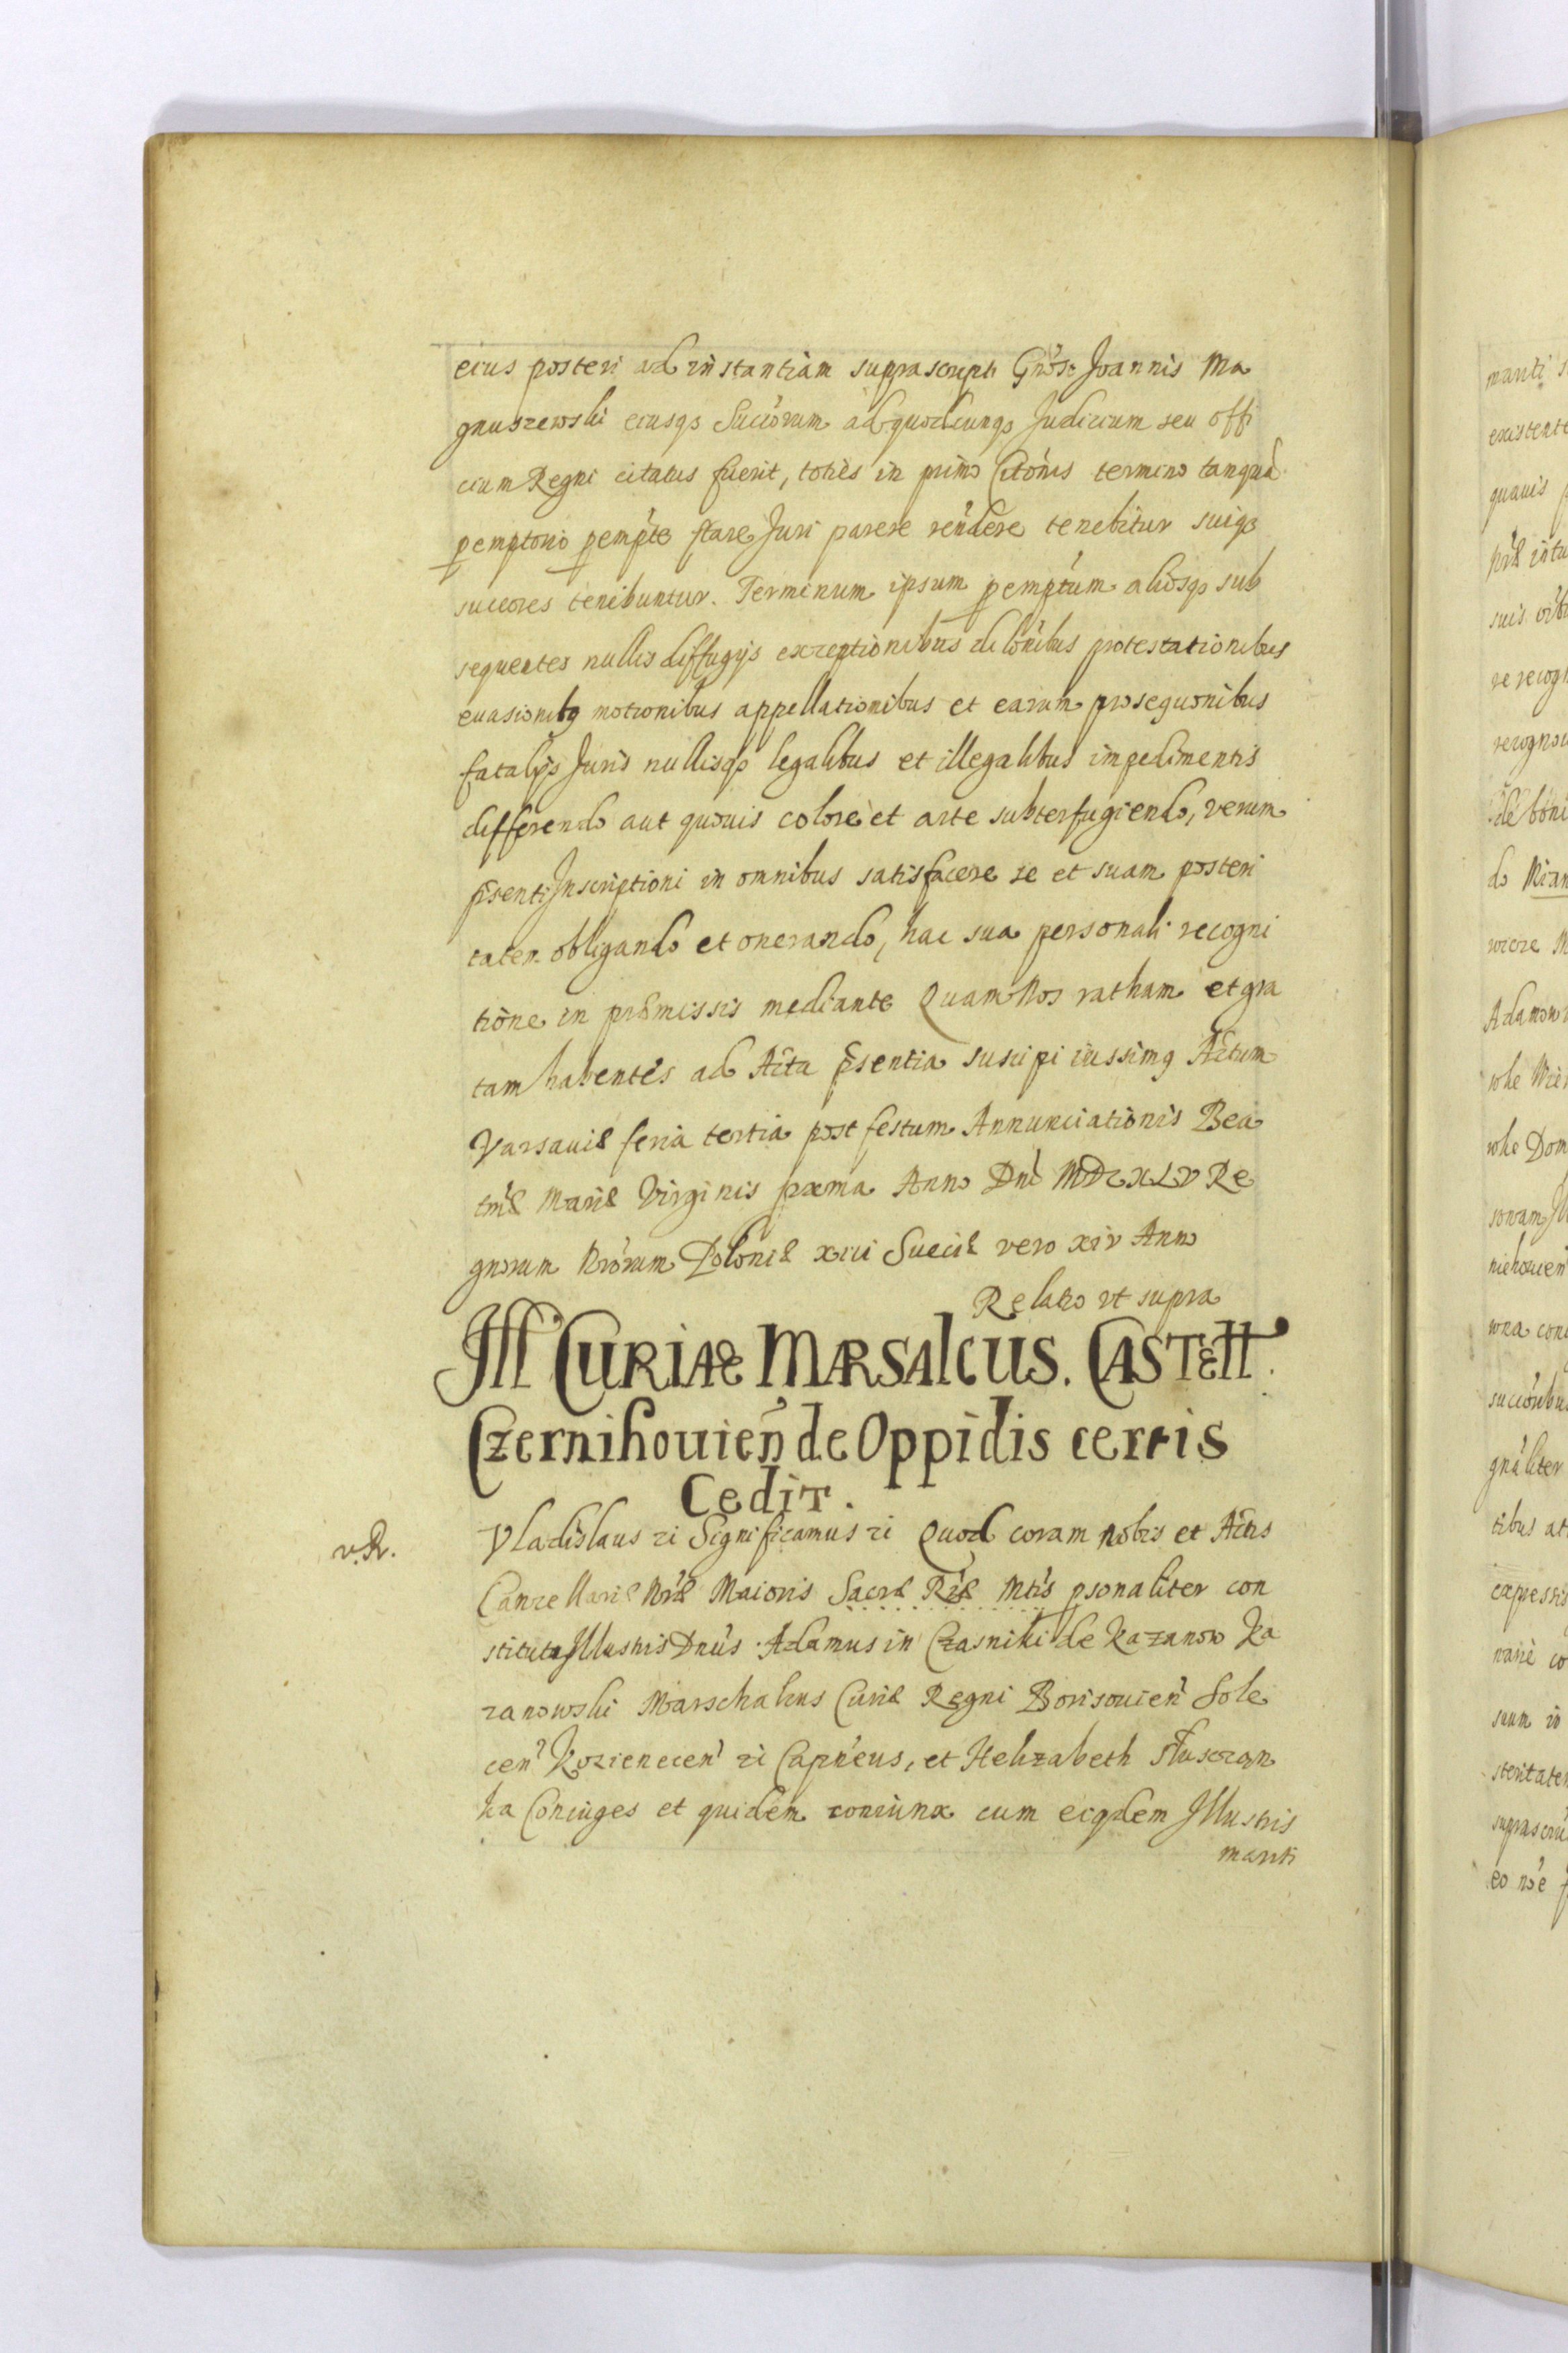 eius posteri ad instantiam suprascripti Gnosi Joannis Ma
gnuszewski eiusqs Succorum ad quodcunqs Judicium seu offi
cium Regni citatus fuerit, toties in primo Citonis termino tanqua
pemptorio pempte stare Juri parere rendere tenebitur suiqs
succores tenebuntur. Terminum ipsum pemptum aliosqs sub
sequentes nullis diffugijs exceptionibus dilonibus protestationibus
euasionibq motionibus appellationibus et earum prosequonibus
fatalijs Juris nullisqs legalibus et illegalibus impedimentis
differendo aut quouis colore et arte subterfugiendo, verum
psenti Inscriptioni in omnibus satisfacere se et suam posteri
tatem obligando et onerando, hac sua personali recogni
tione in præmissis mediante Quam Nos ratham et gra
tam habentes ad Acta psentia suscipi iussimq Actum
Varsauiæ feria tertia post festum Annunciationis Bea
tmæ Mariæ Virginis pxma Anno Dni MDCXLV Re
gnorum Nrorum Poloniæ xiii Sueciæ vero xiv Anno
Relatio vt supra
Ill CURIAE MARSALCUS. CASTELL.
Czernihouien de Oppidis certis
Cedit.
v. R.
Vladislaus zi Significamus zi Quod coram nobis et Actis
Cancellariæ Nræ Maioris Sacræ Riæ Mtis psonaliter con
stituti Illustris Dnus Adamus in Czasniki de Kazanow Ka
zanowski Marschalcus Curiæ Regni Borisouien Sole
cen Kozienecen zi Capneus, et Helizabeth Sluszczan
ka Coniuges et quidem coniunx cum eiqdem Illustris
mariti